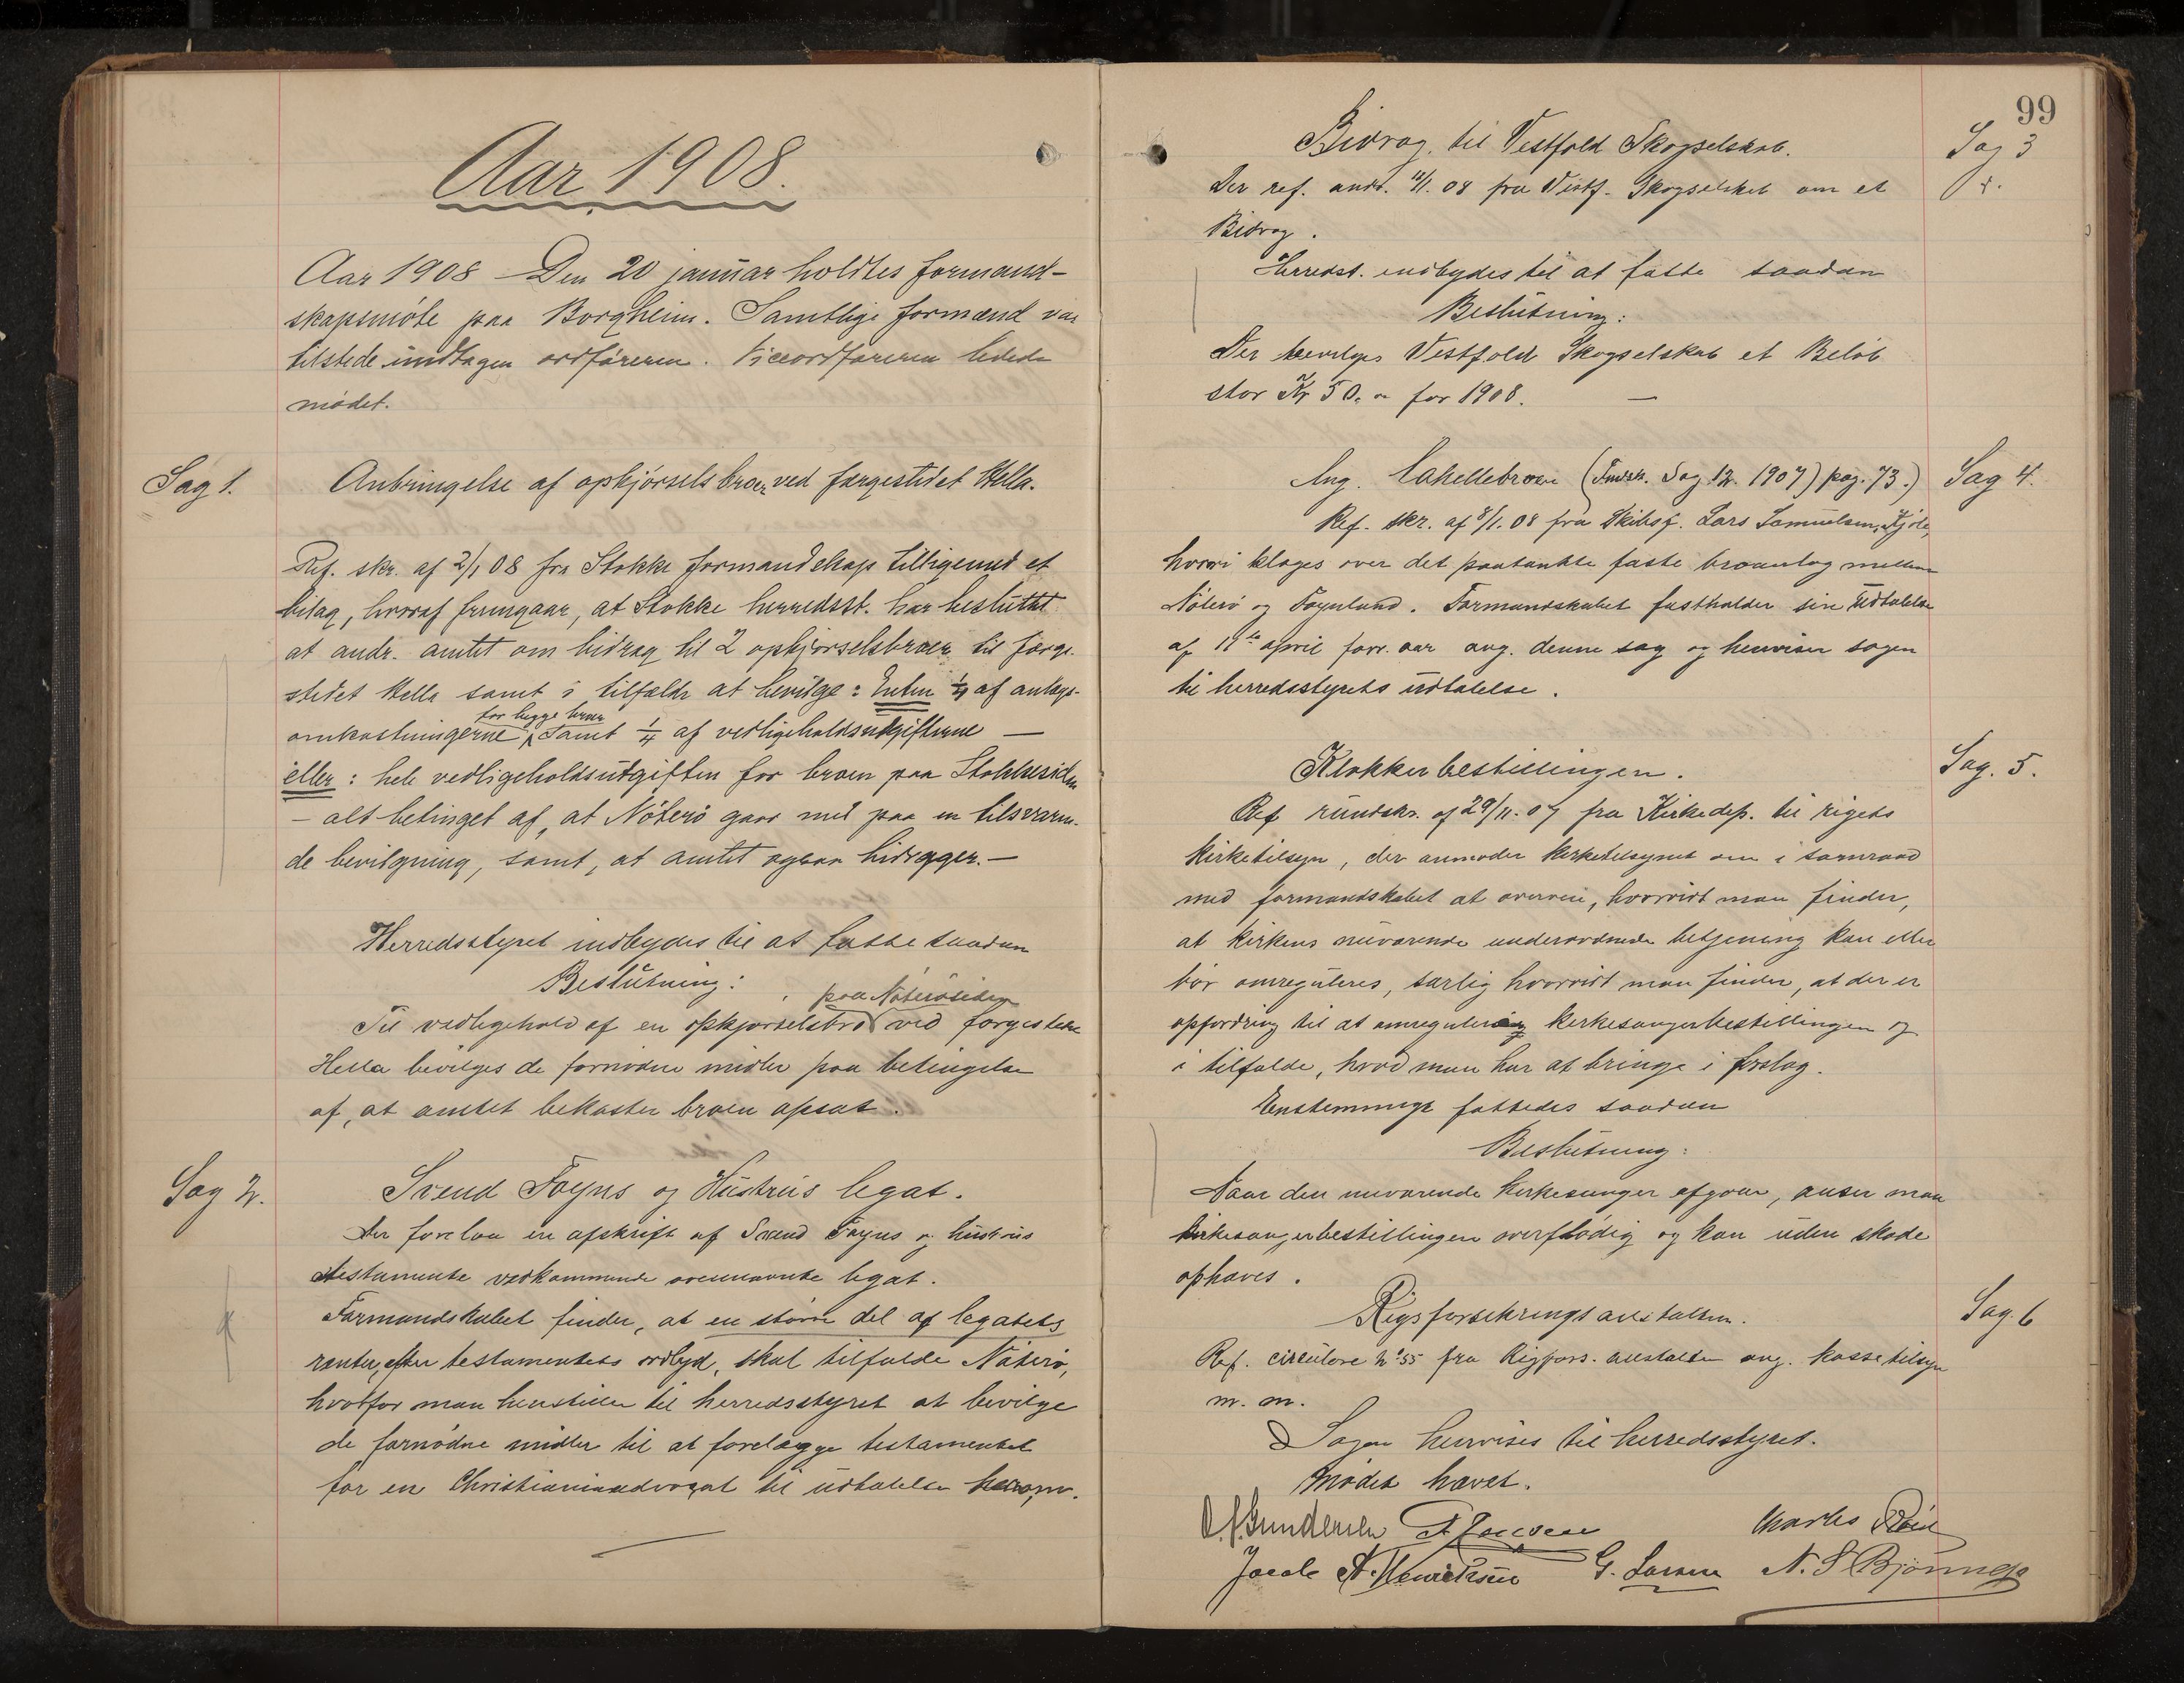 Aar 1908.
Aar 1908 – Den 20 januar holdtes formand-
skapsmöte paa Borgheim. Samtlige formænd var
tilstede undtagen ordföreren. Viceordföreren ledede
mödet.
Sag 1.
Anbringelse af opkjörselsbroer ved færgestedet Hella.
Ref. skr. af 2/1 08 fra Stokke formandskap tilligemed et
bilag, hvoraf fremgaar, at Stokke herredsst. har besluttet
at andr. amtet om bidrag til 2 opkjörselsbroer til færge-
stedet Hella samt i tilfælde at bevilge: Enten 1/4 af anlægs-
for begge broer
omkostningerne samt 1/4 af vedligeholdsudgifterne –
eller: hele vedligeholdsudgiften for broen paa Stokkesiden
– alt betinget af, at Nöterö gaar med paa en tilsvaren-
de bevilgning, samt, at amtet ogsaa bidrager. –
Herredsstyret indbydes til at fatte saadan
Beslutning:
paa Nöterösiden
Til vedligehold af en opkjörselsbro ved færgestedet
Hella bevilges de fornödne midler paa betingelse
af, at amtet bekoster broen opsat.
Sag 2.
Svend Foyns og Hustrus legat.
Der forelaa en afskrift af Svend Foyns og hustrus
testamente vedkommende ovennævnte legat.
Formandskabet finder, at en större del af legatets
renter, efter testamentets ordlyd, skal tilfalde Nöterö,
hvorfor man henstiller til herredsstyret at bevilge
de fornödne midler til at forelægge testamentet
for en Christianiaadvokat til udtalelse herom.
99
Bidrag til Vestfold Skogselskab.
Sag 3
Der ref. andr. /1. 08 fra Vestf. Skogselskab om et
Bidrag.
Herredst. indbydes til at fatte saadan
Beslutning:
Der bevilges Vestfold Skogselskab et Belöb
stor Kr 50.00 for 1908. –
Ang. Kakellebroen (Forsk. Sag 12. 1907) pag. 73.)
Sag 4.
Ref. skr. af 8/1. 08 fra Skibsf. Lars Samuelsen,
hvori klages over det paatænkte faste broanlæg mellem
Nöterö og Föynland. Formandskabet fastholder sin Udtalelse
af 11te april forr. aar ang. denne sag og henviser sagen
til herredsstyrets udtalelse.
Klokkerbestillingen.
Sag. 5.
Ref rundskr. af 29/11. 07 fra Kirkedep. til rigets
kirketilsyn, der anmoder kirketilsynet om i samraad
med formandskabet at overveie, hvorvidt man finder,
at kirkens nuværende underordnede betjening kan eller
bör omreguleres, særlig hvorvidt man finder, at der er
opfordring til at omregulering kirkesangerbestillingen og
i tilfælde, hvad man har at bringe i forslag.
Enstemmigt fattedes saadan
Beslutning:
Naar den nuværende kirkesanger afgaar, anser man
kirkesangerbestillingen overflödig og kan uden skade
ophæves.
Rigsforsikringsanstalten.
Sag. 6
Ref. circulære No 55 fra Rigsfors. anstalten ang. kassetilsyn
m. m.
Sagen henvises til herredsstyret.
Mödet hævet.
Gundersen
Charles
Jacob A. Henriksen G. Larsen N. S Bjönness